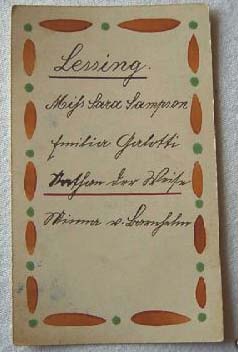 Lessing.
Miss Sara Sampson
Emilia Galotti
Nathan der Weise
Minna v. Barnhelm